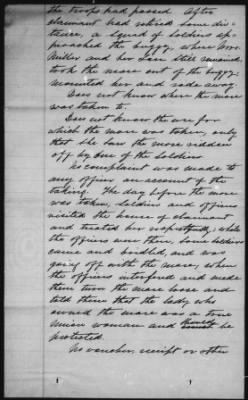 the troops had passed. After
claimant had retired some dis-
tance, a squad of soldiers ap-
proached the buggy, where Mrs
Miller and her son still remained,
took the mare out of the buggy,
mounted her and rode away.
Does not know where the mare
was taken to.
Does not know the use for
which the mare was taken, only
that she saw the mare ridden
off by one of the soldiers
No complaint was made to
any officer on account of the
taking. The day before the mare
was taken, soldiers and officers
visited the house of claimant
and treated her respectfully; while
the officers were there, some soldiers
came and bridled, and was
going off with the mare, when
the officers interfered and made
them turn the mare loose and
told them that the lady who
owned the mare was a true
Union woman and should be
protected.
No voucher, receipt or other